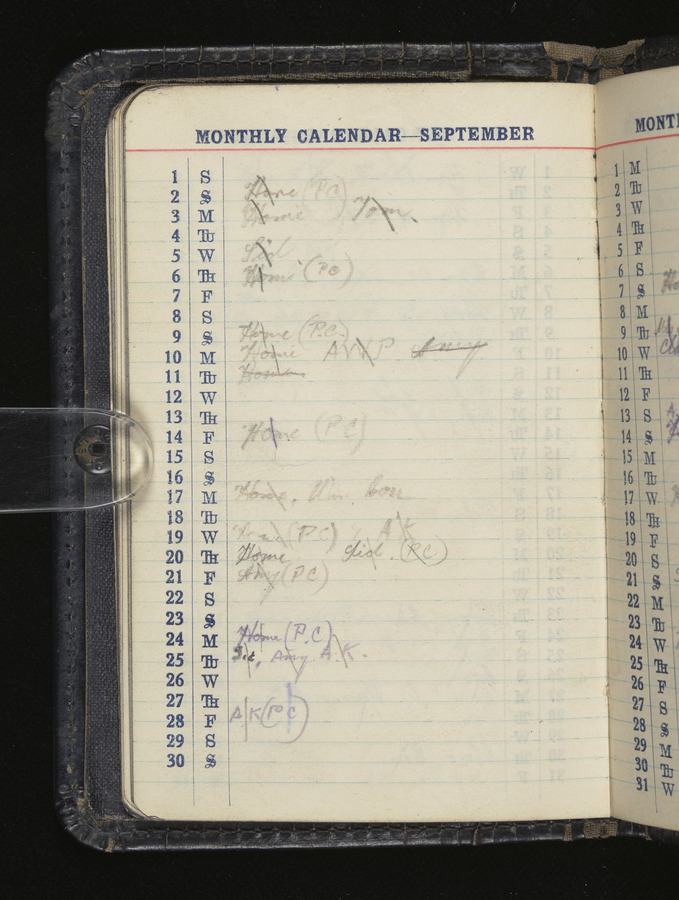 MONTHLY CALENDAR—SEPTEMBER
1 S
2 S Home (P.C)
3 M Home Tom.
4 TU
5 W Sid
6 TH Home (PC)
7 F
8 S
9 S Home (P.C.)
10 M Home A.V.P. Amy
11 TU Home
12 W
13 TH
14 F Home (PC)
15 S
16 S
17 M Home, Win.
18 TU
19 W Home (PC) AK
20 TH Home Sid. (PC)
21 F Amy (PC)
22 S
23 S
24 M Home (P.C)
25 TU Sid, Amy A.K.
26 W
27 TH
28 F AK (PC)
29 S
30 S
MONT
1 M
2 TU
3 W
4 TH
5 F
6 S
7 S
8 M
9 TU
10 W
11 TH
12 F
13 S
14 S
15 M
16 TU
17 W
18 TH
19 F
20 S
21 S
22 M
23 TU
24 W
25 TH
26 F
27 S
28 S
29 M
30 TU
31 W